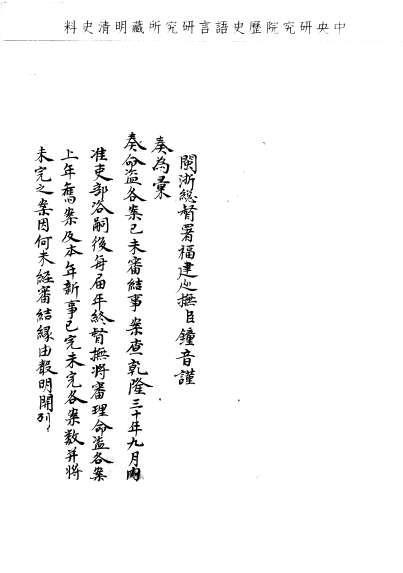 中央研究院歷史語言研究所藏明清史料
閩浙総督署福建廵撫臣鐘音謹
奏為彙
奏命盗各案已未審結事案查乾隆三十年九月內
准吏部咨嗣後每届年終督撫將審理命盗各案
上年舊案及本年新事已完未完各案数并將
未完之案因何未經審結緣由聲明開列